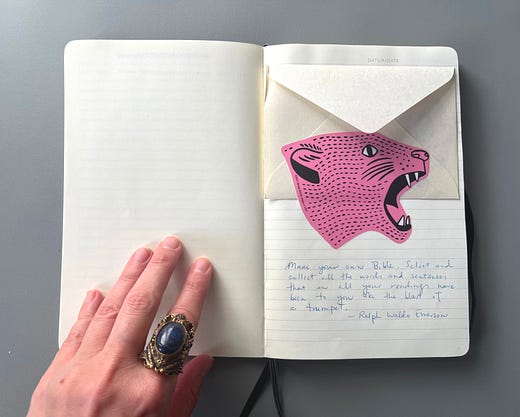 DATUM/DATE
Make your own Bible. Select and
collect all the words and sentences
that in all your readings have
been to you like the blast of
a trumpet.
– Ralph Waldo Emerson